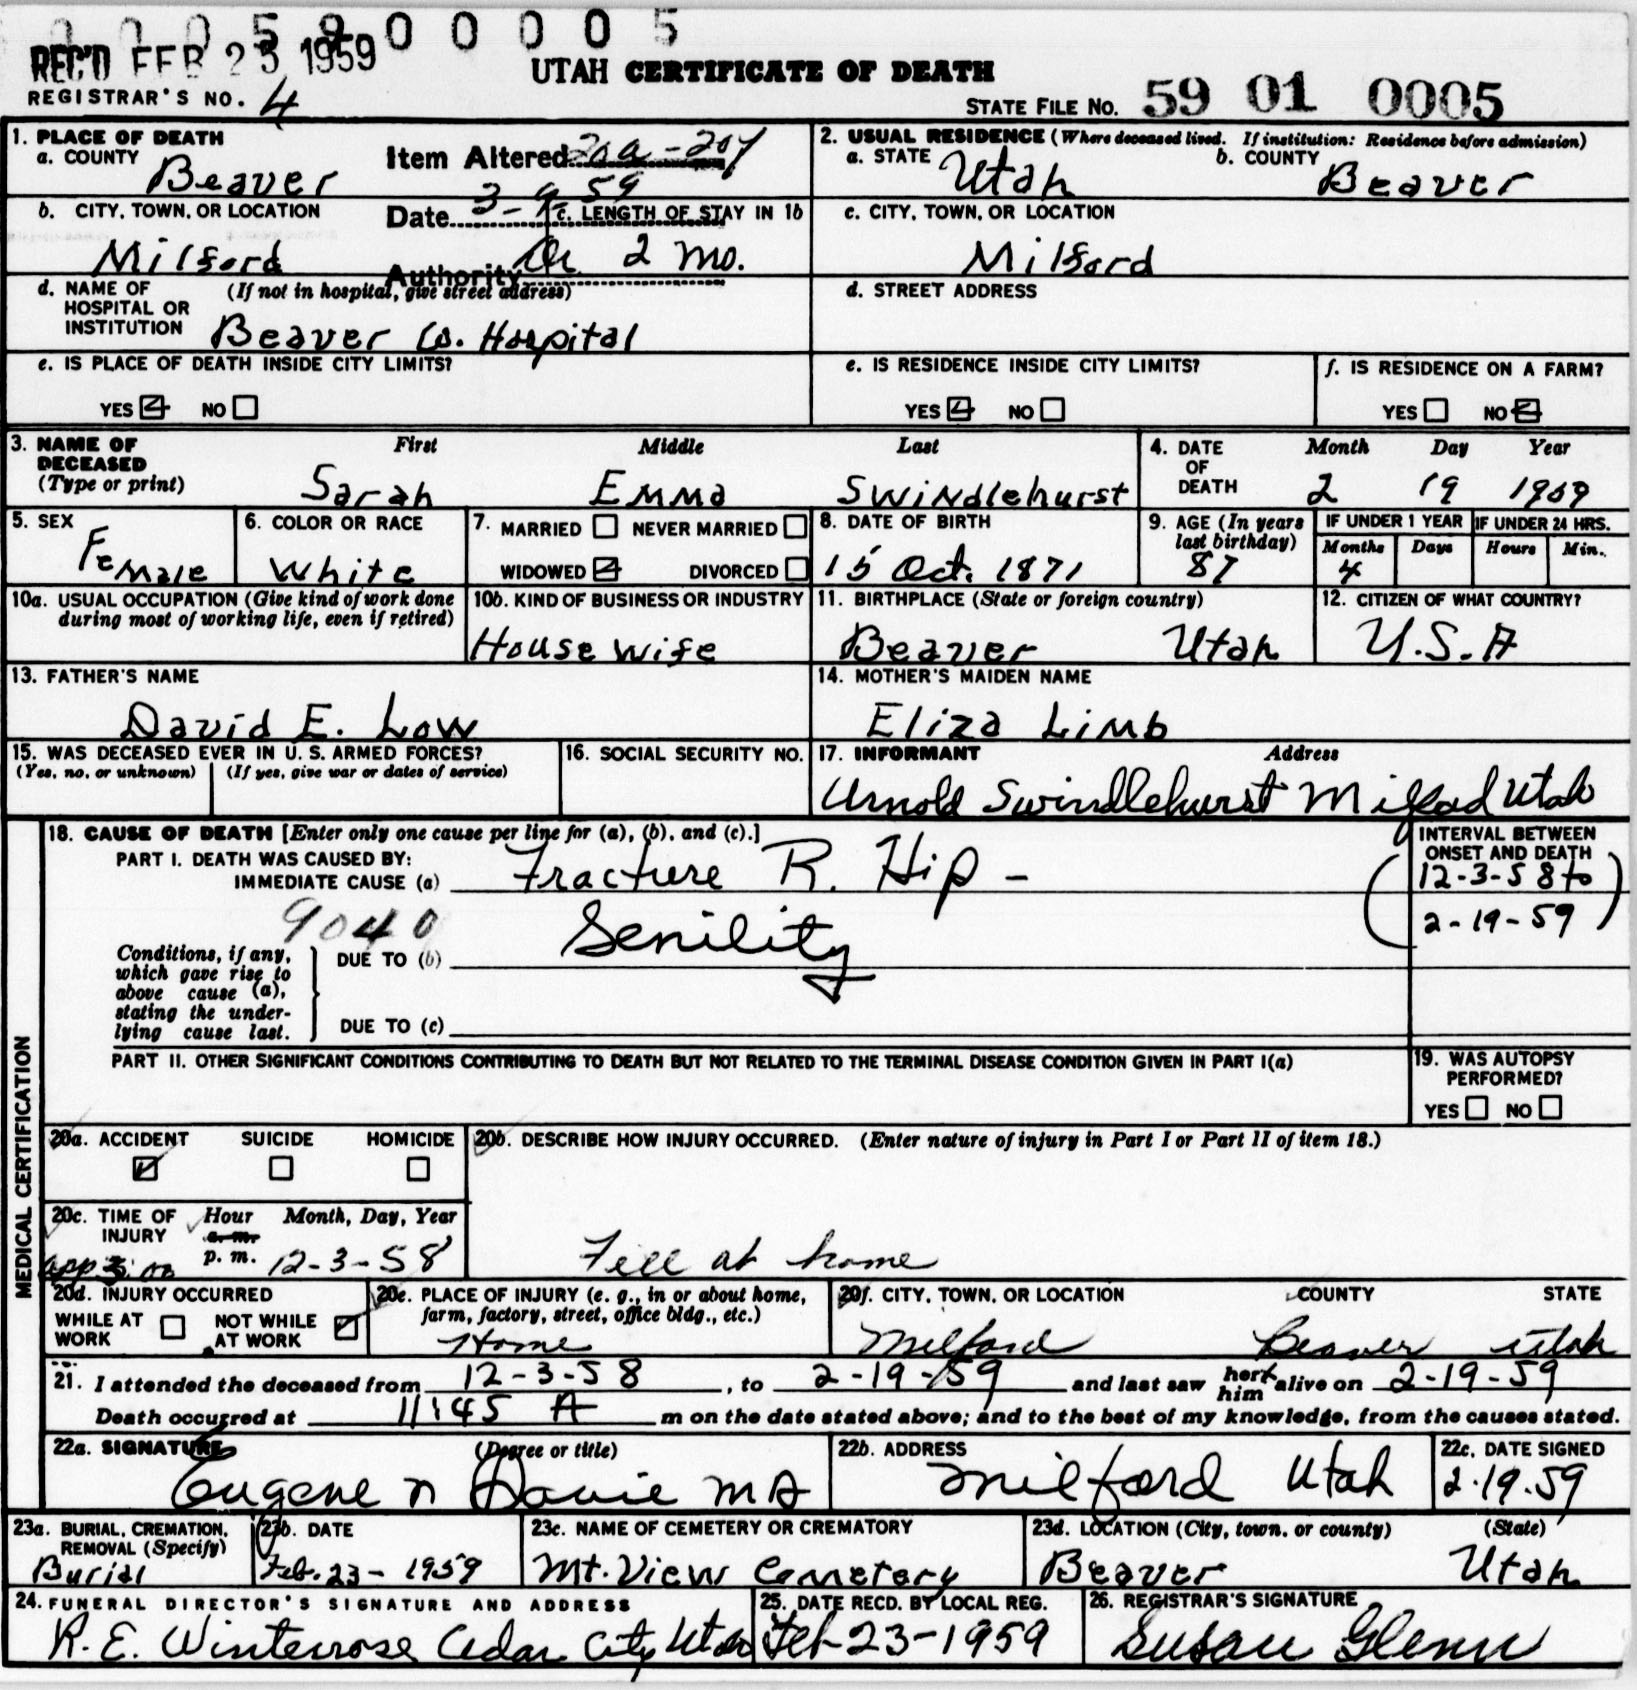 0 0 0 5 9 0 0 0 0 5
REC'D FEB 23 1959
UTAH CERTIFICATE OF DEATH
REGISTRAR'S NO. 4
STATE FILE NO. 59 01 0005
1. PLACE OF DEATH
a. COUNTY Beaver
Item Altered 20a-20f
2. USUAL RESIDENCE (Where deceased lived. If institution: Residence before admission)
a. STATE Utah b. COUNTY Beaver
b. CITY, TOWN, OR LOCATION Milford
Date 3-9-59
c. LENGTH OF STAY IN 1b 2 Mo.
Authority Dr
c. CITY, TOWN, OR LOCATION
Milford
d. NAME OF HOSPITAL OR INSTITUTION (If not in hospital, give street address)
Beaver Co. Hospital
d. STREET ADDRESS
e. IS PLACE OF DEATH INSIDE CITY LIMITS?
YES NO
e. IS RESIDENCE INSIDE CITY LIMITS?
YES NO
f. IS RESIDENCE ON A FARM?
YES NO
3. NAME OF DECEASED (Type or print) First Middle Last
Sarah Emma Swindlehurst
4. DATE OF DEATH Month Day Year
2 19 1959
5. SEX
Female
6. COLOR OR RACE
White
7. MARRIED NEVER MARRIED
WIDOWED DIVORCED
8. DATE OF BIRTH
15 Oct. 1871
9. AGE (In years last birthday)
87
IF UNDER 1 YEAR IF UNDER 24 HRS.
Months Days Hours Min.
4
10a. USUAL OCCUPATION (Give kind of work done during most of working life, even if retired)
10b. KIND OF BUSINESS OR INDUSTRY
House wife
11. BIRTHPLACE (State or foreign country)
Beaver Utah
12. CITIZEN OF WHAT COUNTRY?
U.S.A
13. FATHER'S NAME
David E. Low
14. MOTHER'S MAIDEN NAME
Eliza Limb
15. WAS DECEASED EVER IN U. S. ARMED FORCES?
(Yes, no, or unknown) (If yes, give war or dates of service)
16. SOCIAL SECURITY NO.
17. INFORMANT Address
Arnold Swindlehurst Milford Utah
MEDICAL CERTIFICATION
18. CAUSE OF DEATH [Enter only one cause per line for (a), (b), and (c).]
PART I. DEATH WAS CAUSED BY:
IMMEDIATE CAUSE (a) Fracture R. Hip -
INTERVAL BETWEEN ONSET AND DEATH
12-3-58 to
2-19-59
9040
Conditions, if any, which gave rise to above cause (a), stating the underlying cause last.
DUE TO (b) Senility
DUE TO (c)
PART II. OTHER SIGNIFICANT CONDITIONS CONTRIBUTING TO DEATH BUT NOT RELATED TO THE TERMINAL DISEASE CONDITION GIVEN IN PART I(a)
19. WAS AUTOPSY PERFORMED?
YES NO
20a. ACCIDENT SUICIDE HOMICIDE
20b. DESCRIBE HOW INJURY OCCURRED. (Enter nature of injury in Part I or Part II of item 18.)
Fell at home
20c. TIME OF INJURY Hour Month, Day, Year
a. m.
p. m. 12-3-58
20d. INJURY OCCURRED
WHILE AT WORK NOT WHILE AT WORK
20e. PLACE OF INJURY (e. g., in or about home, farm, factory, street, office bldg., etc.)
Home
20f. CITY, TOWN, OR LOCATION COUNTY STATE
Milford Beaver Utah
21. I attended the deceased from 12-3-58, to 2-19-59 and last saw her him alive on 2-19-59
Death occurred at 11:45 A m on the date stated above; and to the best of my knowledge, from the causes stated.
22a. SIGNATURE (Degree or title)
Eugene n Davie MD
22b. ADDRESS
Milford Utah
22c. DATE SIGNED
2-19-59
23a. BURIAL, CREMATION, REMOVAL (Specify)
Burial
23b. DATE
Feb. 23- 1959
23c. NAME OF CEMETERY OR CREMATORY
Mt. View Cemetery
23d. LOCATION (City, town, or county) (State)
Beaver Utah
24. FUNERAL DIRECTOR'S SIGNATURE AND ADDRESS
R. E. Winterrose Cedar City Utah
25. DATE RECD. BY LOCAL REG.
Feb-23-1959
26. REGISTRAR'S SIGNATURE
Susan Glenn